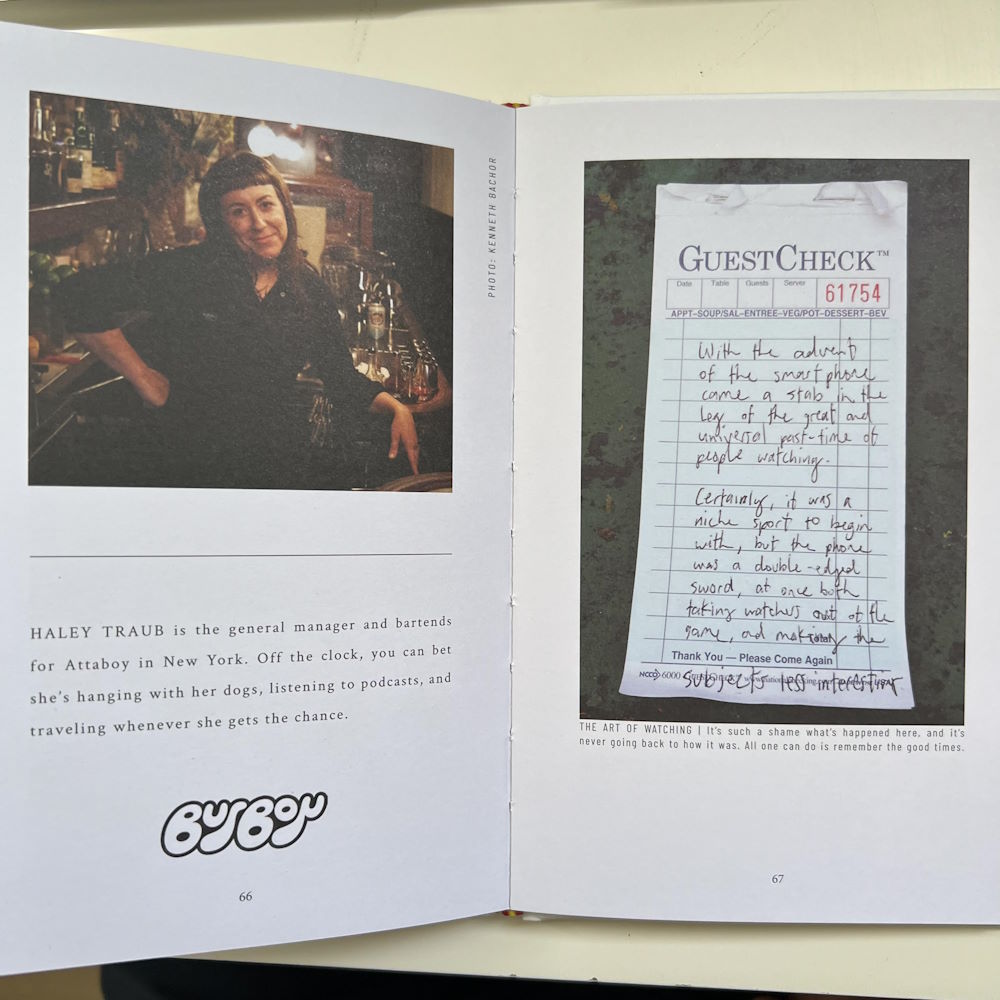 PHOTO: KENNETH BACHOR
HALEY TRAUB is the general manager and bartends
for Attaboy in New York. Off the clock, you can bet
she's hanging with her dogs, listening to podcasts, and
traveling whenever she gets the chance.
BUSBOY
66
GUESTCHECK™
Date Table Guests Server
61754
APPT–SOUP/SAL–ENTREE–VEG/POT–DESSERT–BEV
With the advent
of the smartphone
came a stab in the
leg of the great and
universal past-time of
people watching.
Certainly, it was a
niche sport to begin
with, but the phone
was a double-edged
sword, at once both
taking watchers out of the
game, and making the
Total
Thank You — Please Come Again
subjects less interesting
NCCO 6000
THE ART OF WATCHING | It's such a shame what's happened here, and it's
never going back to how it was. All one can do is remember the good times.
67